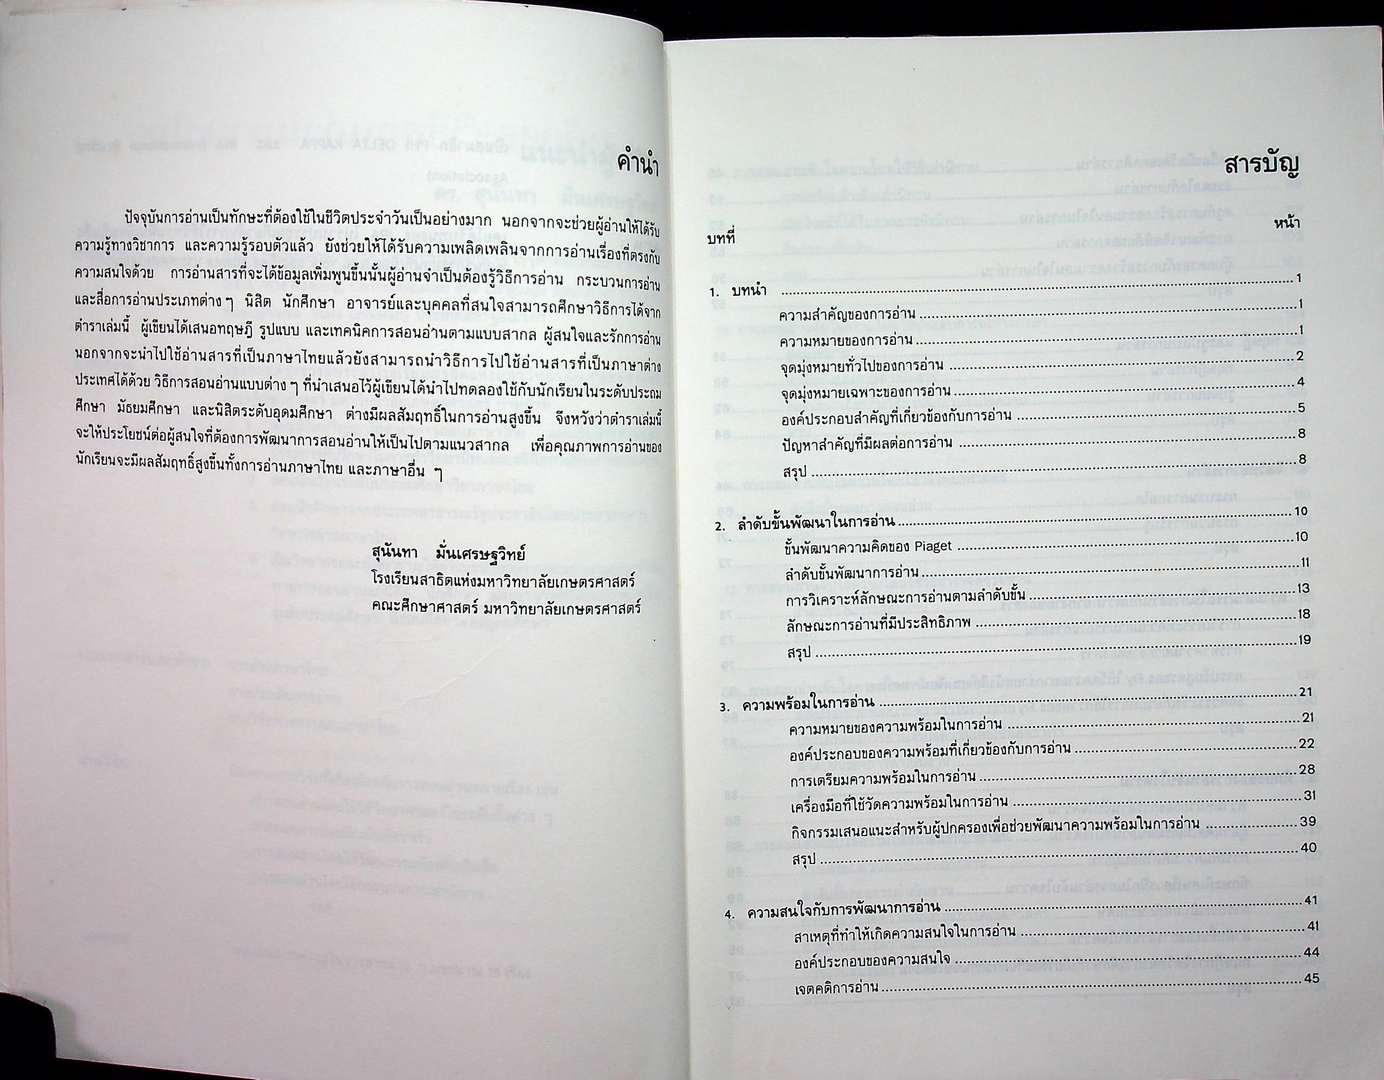 คำนำ
ปัจจุบันการอ่านเป็นทักษะที่ต้องใช้ในชีวิตประจำวันเป็นอย่างมาก นอกจากจะช่วยผู้อ่านให้ได้รับ
ความรู้ทางวิชาการ และความรู้รอบตัวแล้ว ยังช่วยให้ได้รับความเพลิดเพลินจากการอ่านเรื่องที่ตรงกับ
ความสนใจด้วย การอ่านสารที่จะได้ข้อมูลเพิ่มพูนขึ้นนั้นผู้อ่านจำเป็นต้องรู้วิธีการอ่าน กระบวนการอ่าน
และสื่อการอ่านประเภทต่างๆ นิสิต นักศึกษา อาจารย์และบุคคลที่สนใจสามารถศึกษาวิธีการได้จาก
ตำราเล่มนี้ ผู้เขียนได้เสนอทฤษฎี รูปแบบ และเทคนิคการสอนอ่านตามแบบสากล ผู้สนใจและรักการอ่าน
นอกจากจะนำไปใช้อ่านสารที่เป็นภาษาไทยแล้วยังสามารถนำวิธีการไปใช้อ่านสารที่เป็นภาษาต่าง
ประเทศได้ด้วย วิธีการสอนอ่านแบบต่างๆ ที่นำเสนอไว้ผู้เขียนได้นำไปทดลองใช้กับนักเรียนในระดับประถม
ศึกษา มัธยมศึกษา และนิสิตระดับอุดมศึกษา ต่างมีผลสัมฤทธิ์ในการอ่านสูงขึ้น จึงหวังว่าตำราเล่มนี้
จะให้ประโยชน์ต่อผู้สนใจที่ต้องการพัฒนาการสอนอ่านให้เป็นไปตามแนวสากล เพื่อคุณภาพการอ่านของ
นักเรียนจะมีผลสัมฤทธิ์สูงขึ้นทั้งการอ่านภาษาไทย และภาษาอื่น ๆ
สุนันทา มั่นเศรษฐวิทย์
โรงเรียนสาธิตแห่งมหาวิทยาลัยเกษตรศาสตร์
คณะศึกษาศาสตร์ มหาวิทยาลัยเกษตรศาสตร์
สารบัญ
บทที่ หน้า
1. บทนำ ........ 1
ความสำคัญของการอ่าน ........ 1
ความหมายของการอ่าน ........ 1
จุดมุ่งหมายทั่วไปของการอ่าน ........ 2
จุดมุ่งหมายเฉพาะของการอ่าน ........ 4
องค์ประกอบสำคัญที่เกี่ยวข้องกับการอ่าน ........ 5
ปัญหาสำคัญที่มีผลต่อการอ่าน ........ 8
สรุป ........ 8
2. ลำดับขั้นพัฒนาในการอ่าน ........ 10
ขั้นพัฒนาความคิดของ Piaget ........ 10
ลำดับขั้นพัฒนาการอ่าน ........ 11
การวิเคราะห์ลักษณะการอ่านตามลำดับขั้น ........ 13
ลักษณะการอ่านที่มีประสิทธิภาพ ........ 18
สรุป ........ 19
3. ความพร้อมในการอ่าน ........ 21
ความหมายของความพร้อมในการอ่าน ........ 21
องค์ประกอบของความพร้อมที่เกี่ยวข้องกับการอ่าน ........ 22
การเตรียมความพร้อมในการอ่าน ........ 28
เครื่องมือที่ใช้วัดความพร้อมในการอ่าน ........ 31
กิจกรรมเสนอแนะสำหรับผู้ปกครองเพื่อช่วยพัฒนาความพร้อมในการอ่าน ........ 39
สรุป ........ 40
4. ความสนใจกับการพัฒนาการอ่าน ........ 41
สาเหตุที่ทำให้เกิดความสนใจในการอ่าน ........ 41
องค์ประกอบของความสนใจ ........ 44
เจตคติการอ่าน ........ 45